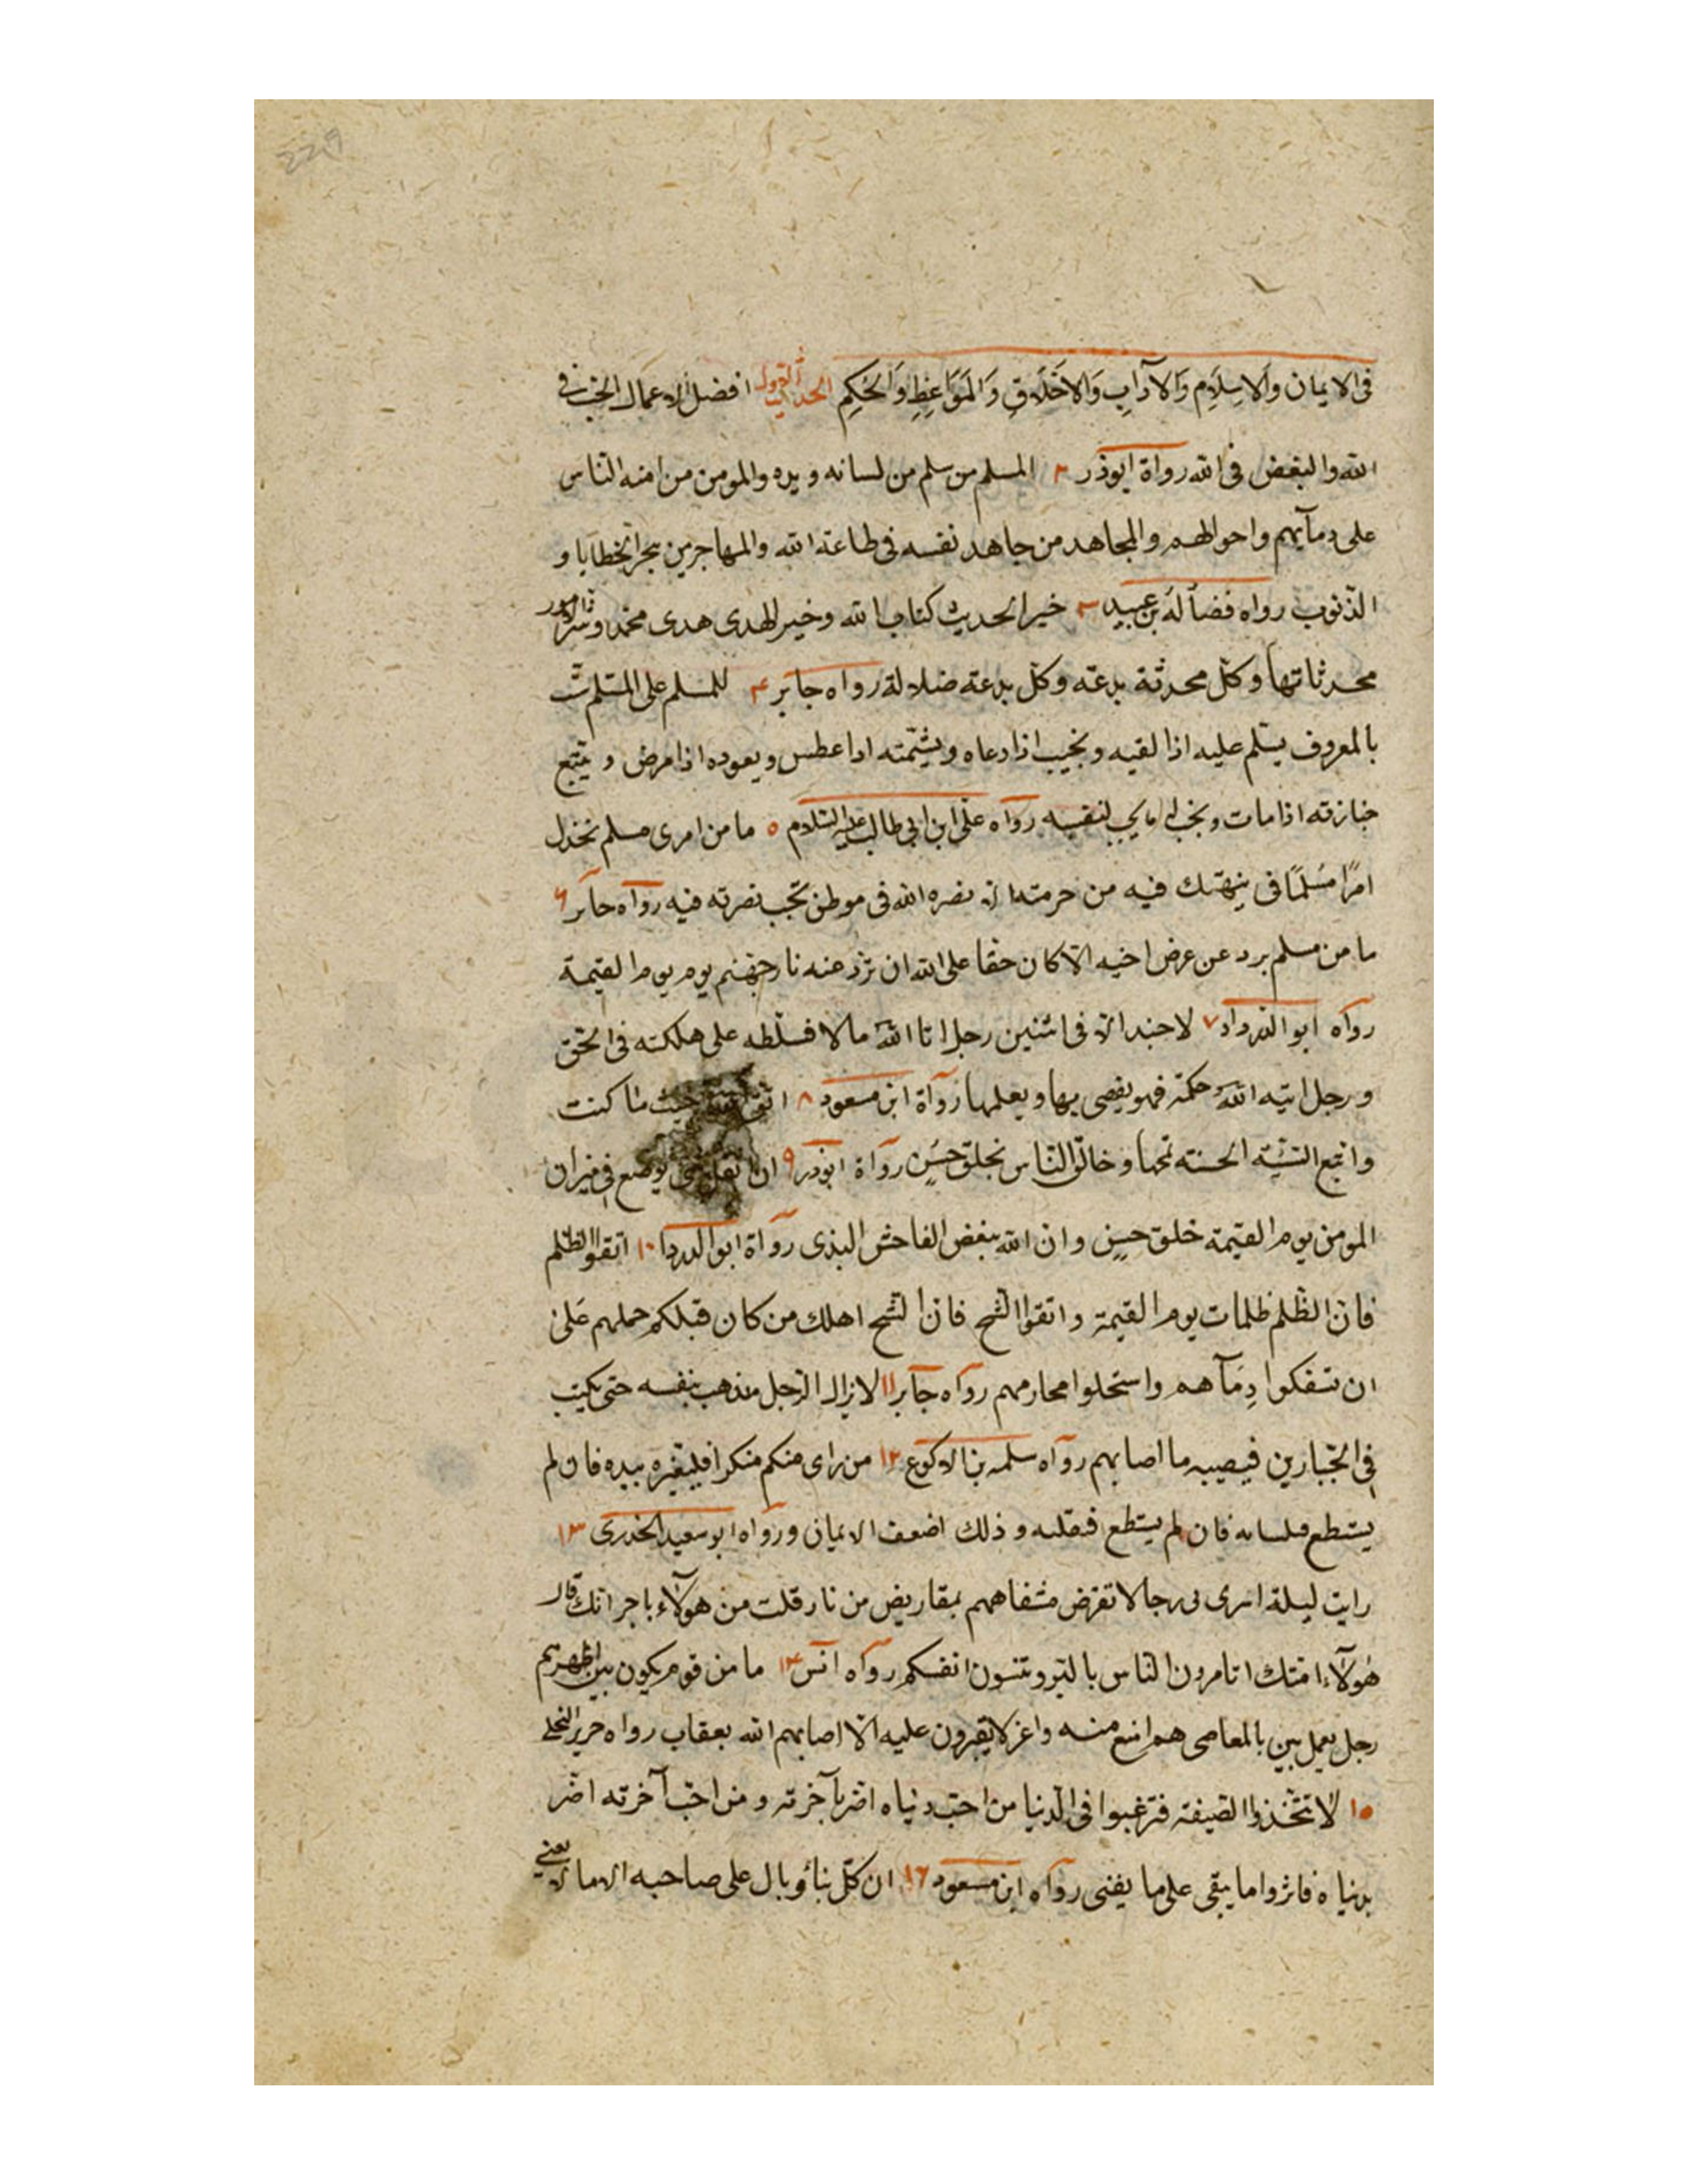 229
فى الايمان والاسلام والآداب والاخلاق والمواعظ والحكم الحديث الاول افضل الاعمال الحب فى
الله والبغض فى الله رواة ابوذر ٢ المسلم من سلم من لسانه ويده والمومن من امنه الناس
على دمآيهم واموالهم والمجاهد من جاهد نفسه فى طاعة الله والمهاجر من هجر الخطايا و
الذنوب رواه فضالة بن عبيد ٣ خير الحديث كتاب الله وخير الهدى هدى محمد وشر الامور
محدثاتها وكل محدثة بدعة وكل بدعة ضلالة رواه جابر ۴ للمسلم على المسلم ست
بالمعروف يسلم عليه اذا لقيه ويجيب اذا دعاه ويشمته اذا عطس ويعوده اذا مرض و يتبع
جنازته اذا مات ويحب له ما يحب لنفسه رواه على ابن ابى طالب عليه السلام ٥ ما من امرى مسلم يخذل
امرًا مسلمًا فى ينهتك فيه من حرمته نصره الله فى موطن تحب نصرته فيه رواه جابر ۶
ما من مسلم يرد عن عرض اخيه الا كان حقا على الله ان ترد عنه نار جهنم يوم يوم القيمة
رواه ابو الدرداء ٧ لا حسد الا فى اثنين رجل اتا الله مالا فسلطه على هلكته فى الحق
ورجل اتيه الله حكمة فهو يقضى بها ويعلمها رواة ابن مسعود ٨ اتق الله حيث ما كنت
واتبع السيئة الحسنة تمحها وخالق الناس بخلق حسن رواة ابوذر ٩ ان اثقل شى يوضع فى ميزان
المومن يوم القيمة خلق حسن وان الله يبغض الفاحش البذى رواة ابو الدردا ١٠ اتقوا الظلم
فان الظلم ظلمات يوم القيمة واتقوا الشح فان الشح اهلك من كان قبلكم حملهم على
ان سفكوا دمآهم واستحلوا محارمهم رواه جابر ١١ لا يزال الرجل يذهب بنفسه حتى يكتب
فى الجبارين فيصيبه ما اصابهم رواه سلمه بن الاكوع ١٢ من راى منكم منكرا فليغيره بيده فان لم
يستطع فبلسانه فان لم يستطع فبقلبه وذلك اضعف الايمان ورواه ابو سعيد الخدرى ١٣
رايت ليلة اسرى بى رجالا تقرض شفاههم بمقاريض من نار قلت من هولآء يا جبرائك قال
هولآء امتك اتامرون الناس بالبر وتنسون انفسكم رواه انس ١۴ ما من قوم يكون بين اظهرهم
رجل يعمل بين بالمعاصى هم امنع منه واعز لا يغيرون عليه الا اصابهم الله بعقاب رواه جرير البجلى
١٥ لا تتخذوا الضيعة فترغبوا فى الدنيا من احب دنياه اضر بآخرته ومن احب آخرته اضر
بدنياه فاثروا ما يبقى على ما يفنى رواه ابن مسعود ١٦ ان كل بناء وبال على صاحبه الا ما لا يعنى